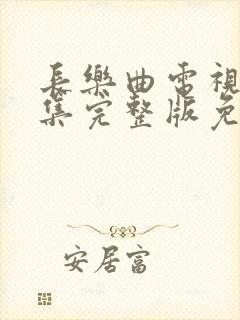 長樂曲電視
集完整版免
安居富